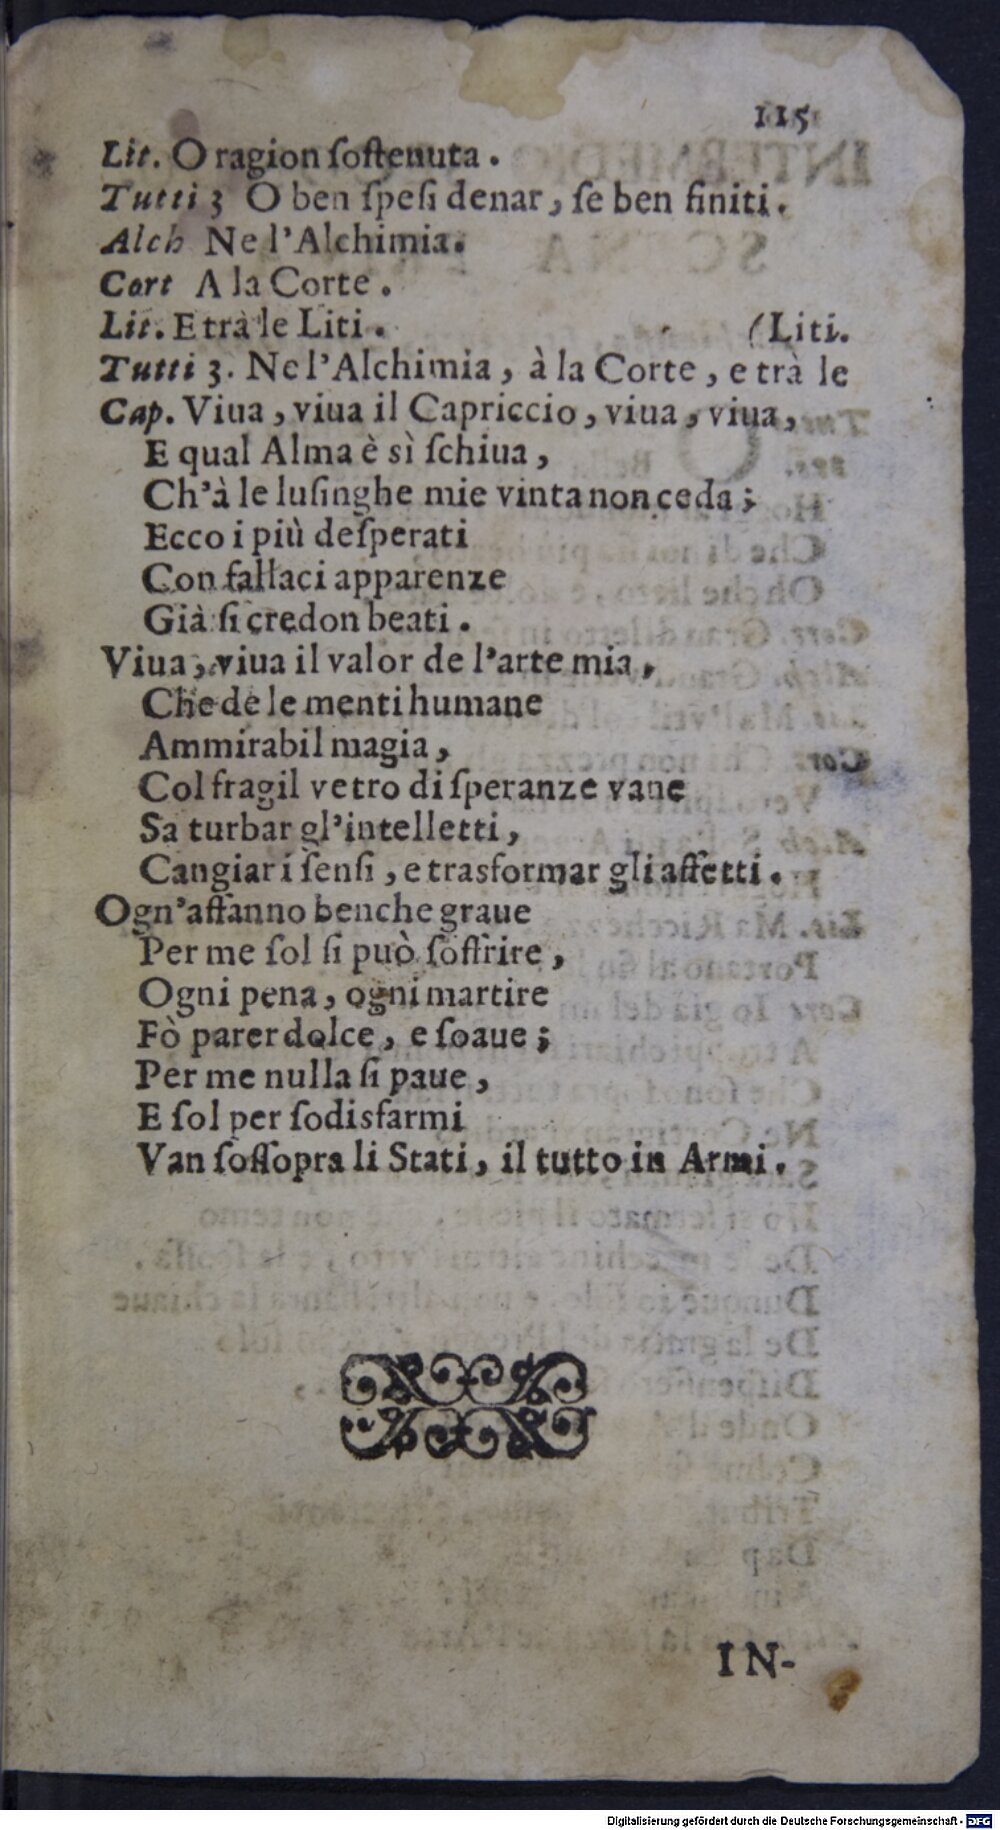 115
Lit. O ragion ſoſtenuta.
Tutti 3 O ben ſpeſi denar, ſe ben finiti.
Alch Ne l'Alchimia.
Cort A la Corte.
Lit. E trà le Liti. (Liti.
Tutti 3. Ne l'Alchimia, à la Corte, e trà le
Cap. Viua, viua il Capriccio, viua, viua,
E qual Alma è sì ſchiua,
Ch'à le luſinghe mie vinta non ceda;
Ecco i più deſperati
Con fallaci apparenze
Già ſi credon beati.
Viua, viua il valor de l'arte mia,
Che de le menti humane
Ammirabil magia,
Col fragil vetro di ſperanze vane
Sa turbar gl'intelletti,
Cangiar i ſenſi, e trasformar gli affetti.
Ogn'affanno benche graue
Per me ſol ſi può ſoffrire,
Ogni pena, ogni martire
Fò parer dolce, e ſoaue;
Per me nulla ſi paue,
E ſol per ſodisfarmi
Van ſoſſopra li Stati, il tutto in Armi.
IN-
Digitalisierung gefördert durch die Deutsche Forschungsgemeinschaft - DFG